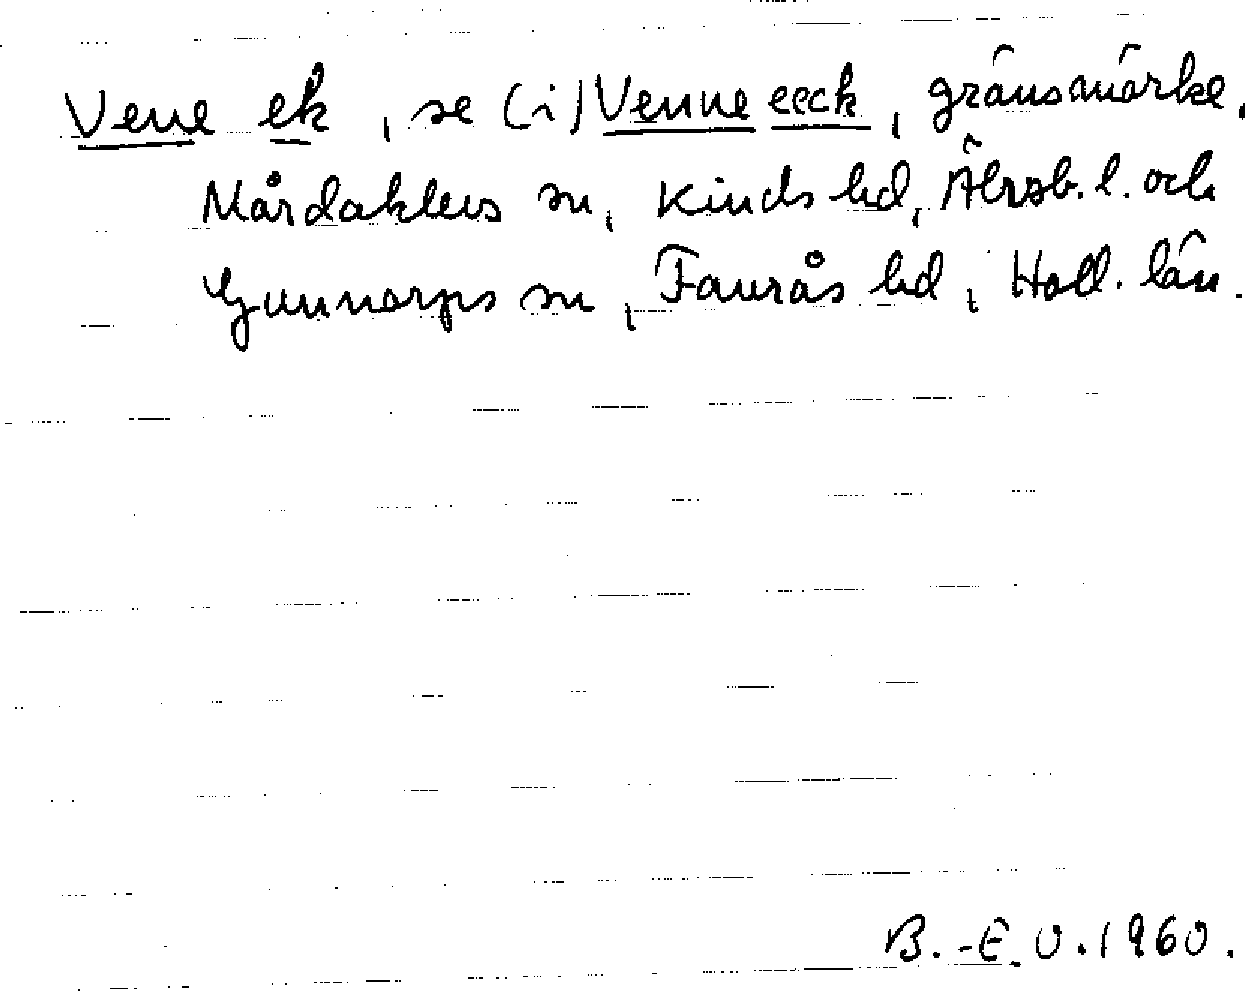 Vene ek, se (i) Venne eeck, gränsmärke,
Mårdaklevs sn, Kinds hd, Älvsb. l. och
Gunnarps sn, Faurås hd, Hall. län.
B.-E. O. 1960.